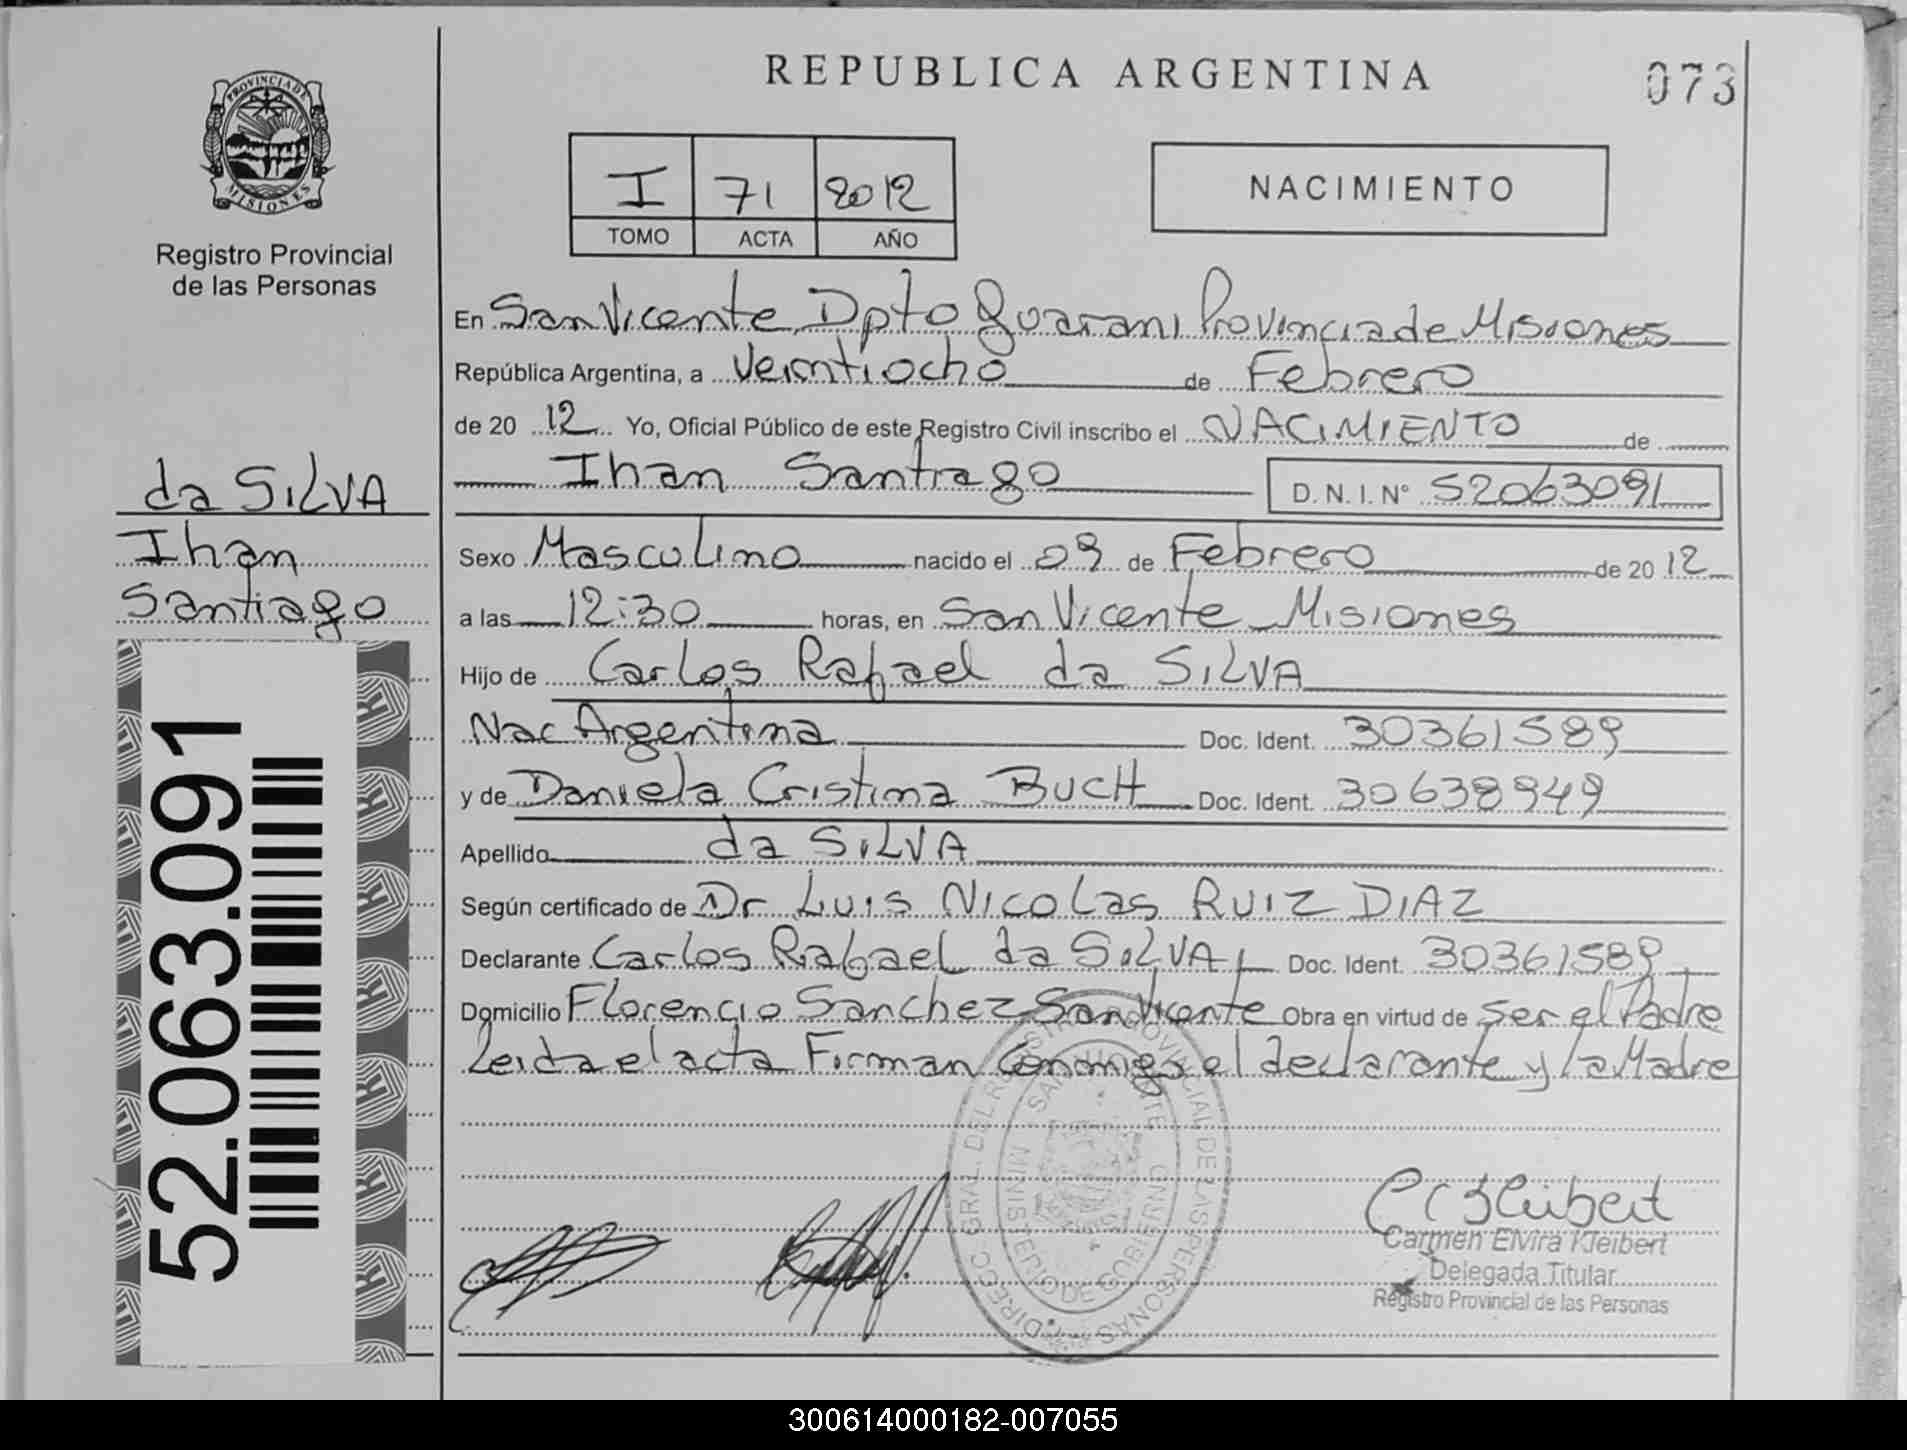 REPUBLICA ARGENTINA
073
PROVINCIA DE
MISIONES
Registro Provincial
de las Personas
I 71 2012
TOMO ACTA AÑO
NACIMIENTO
En San Vicente Dpto Guarani Provincia de Misiones
República Argentina, a Veintiocho de Febrero
de 20 12 Yo, Oficial Público de este Registro Civil inscribo el NACIMIENTO de
Ihan Santiago D. N. I. Nº 52063091
da SILVA
Ihan
Santiago
52.063.091
Sexo Masculino nacido el 09 de Febrero de 20 12
a las 12:30 horas, en San Vicente Misiones
Hijo de Carlos Rafael da SILVA
Nac Argentina Doc. Ident. 30361589
y de Daniela Cristina BUCH Doc. Ident. 30638949
Apellido da SILVA
Según certificado de Dr Luis Nicolas RUIZ DIAZ
Declarante Carlos Rafael da SILVA Doc. Ident. 30361589
Domicilio Florencio Sanchez San Vicente Obra en virtud de ser el Padre
Leida el acta Firman Conmigo el declarante y la Madre
DIRECC. GRAL. DEL REGISTRO PROVINCIAL DE LAS PERSONAS
SAN VICENTE
MINISTERIO DE GOBIERNO
C E Kleibert
Carmen Elvira Kleibert
Delegada Titular
Registro Provincial de las Personas
300614000182-007055